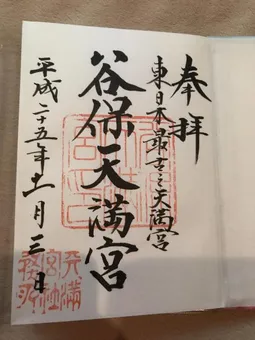 奉拝
東日本最古之天満宮
谷保天満宮
平成二十五年十一月三日